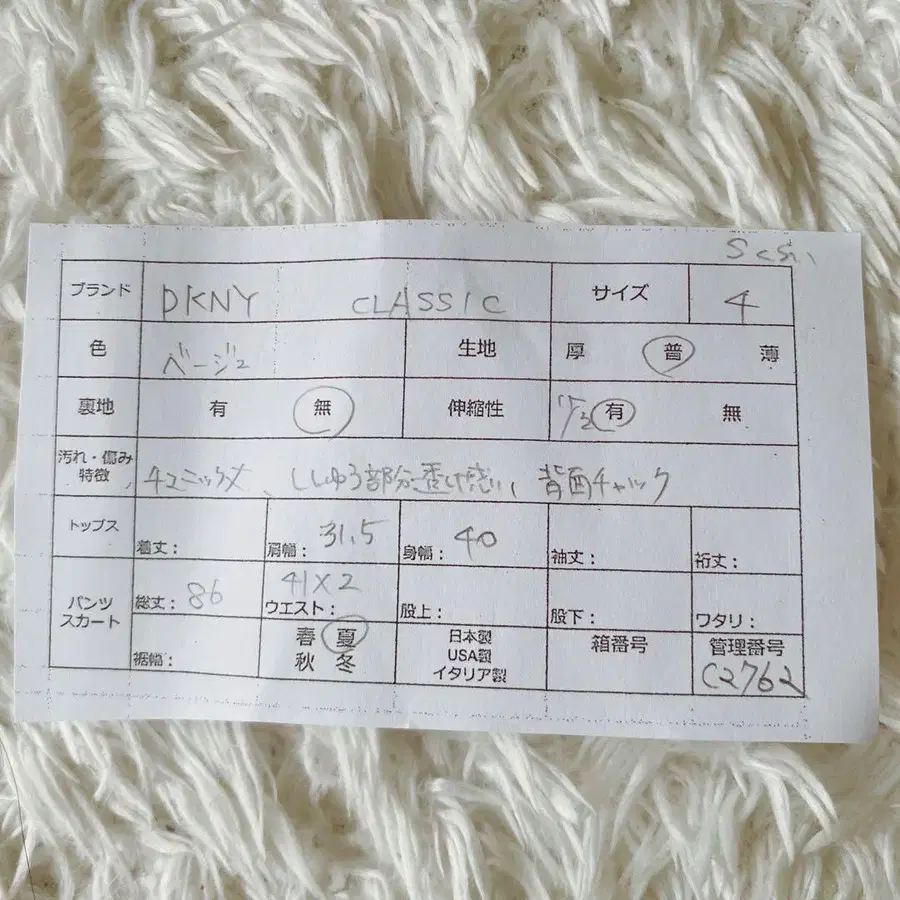 Sくらい
ブランド DKNY CLASSIC サイズ 4
色 ベージュ 生地 厚 普 薄
裏地 有 無 伸縮性 有 無
汚れ・傷み
特徴 チュニック丈、ししゅう部分透け感い、背面チャック
トップス 着丈: 肩幅: 31.5 身幅: 40 袖丈: 裄丈:
パンツ
スカート 総丈: 86 ウエスト: 41×2 股上: 股下: ワタリ:
裾幅: 春 夏 日本製 箱番号 管理番号
秋 冬 USA製 C2762
イタリア製